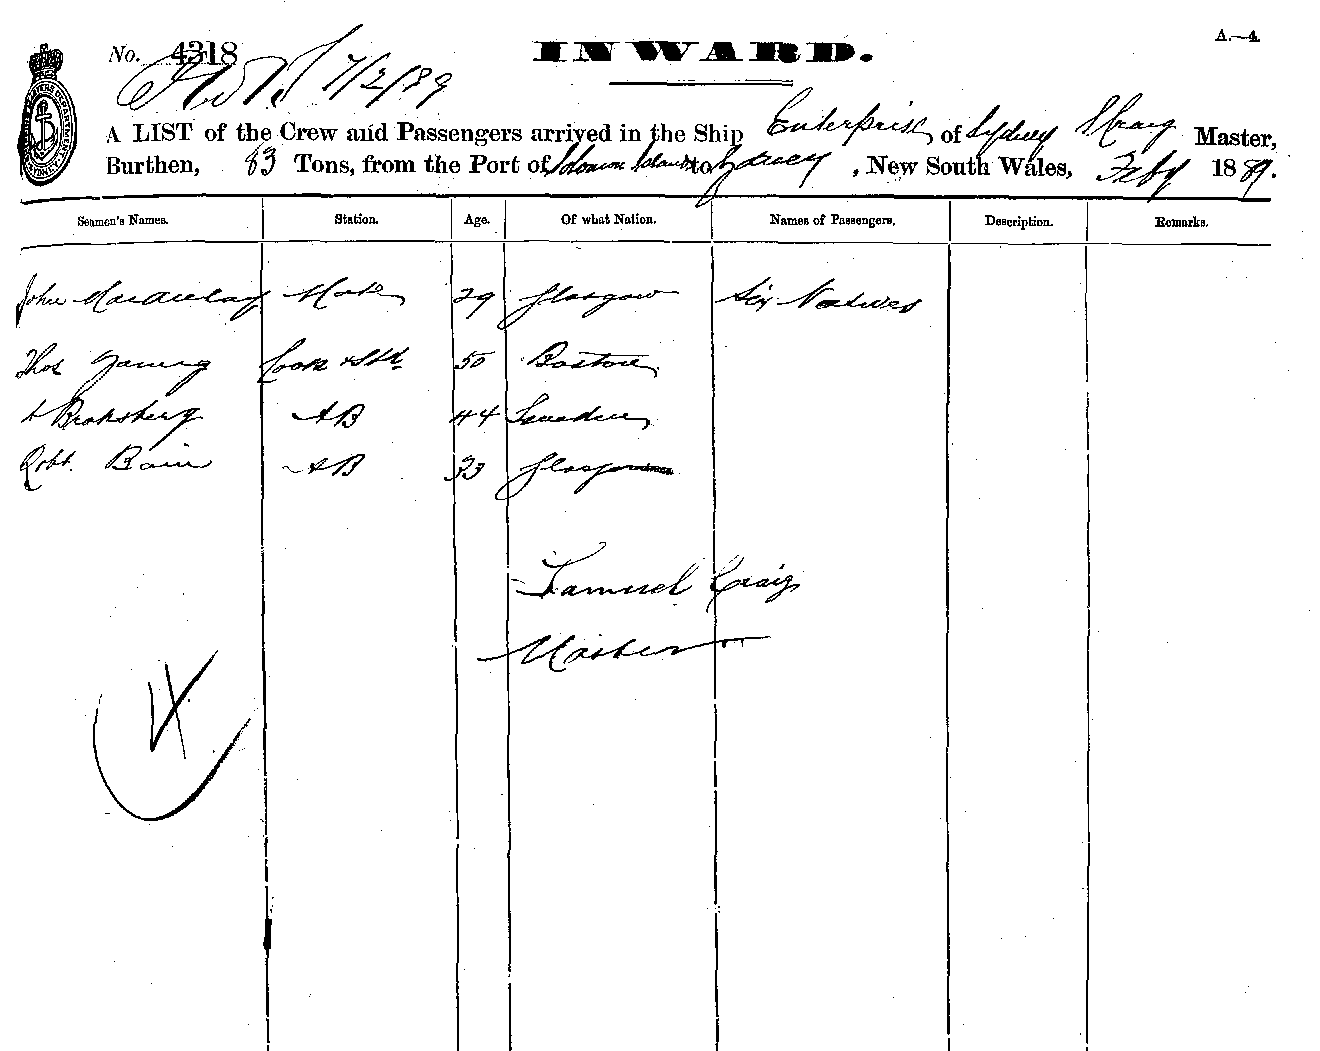 No. 4318
INWARD.
A.—4.
7/2/89
A LIST of the Crew and Passengers arrived in the Ship Enterprise of Sydney S Craig Master,
Burthen, 83 Tons, from the Port of Solomon Islands to Sydney, New South Wales, Feby 1889.
Seamen's Names. Station. Age. Of what Nation. Names of Passengers. Description. Remarks.
John Mate 29 Glasgow Six Natives
Thos Young Cook & Std 50 Boston
AB 44 Sweden
Robt. Bain AB 33 Glasgow
Samuel Craig
Master
4